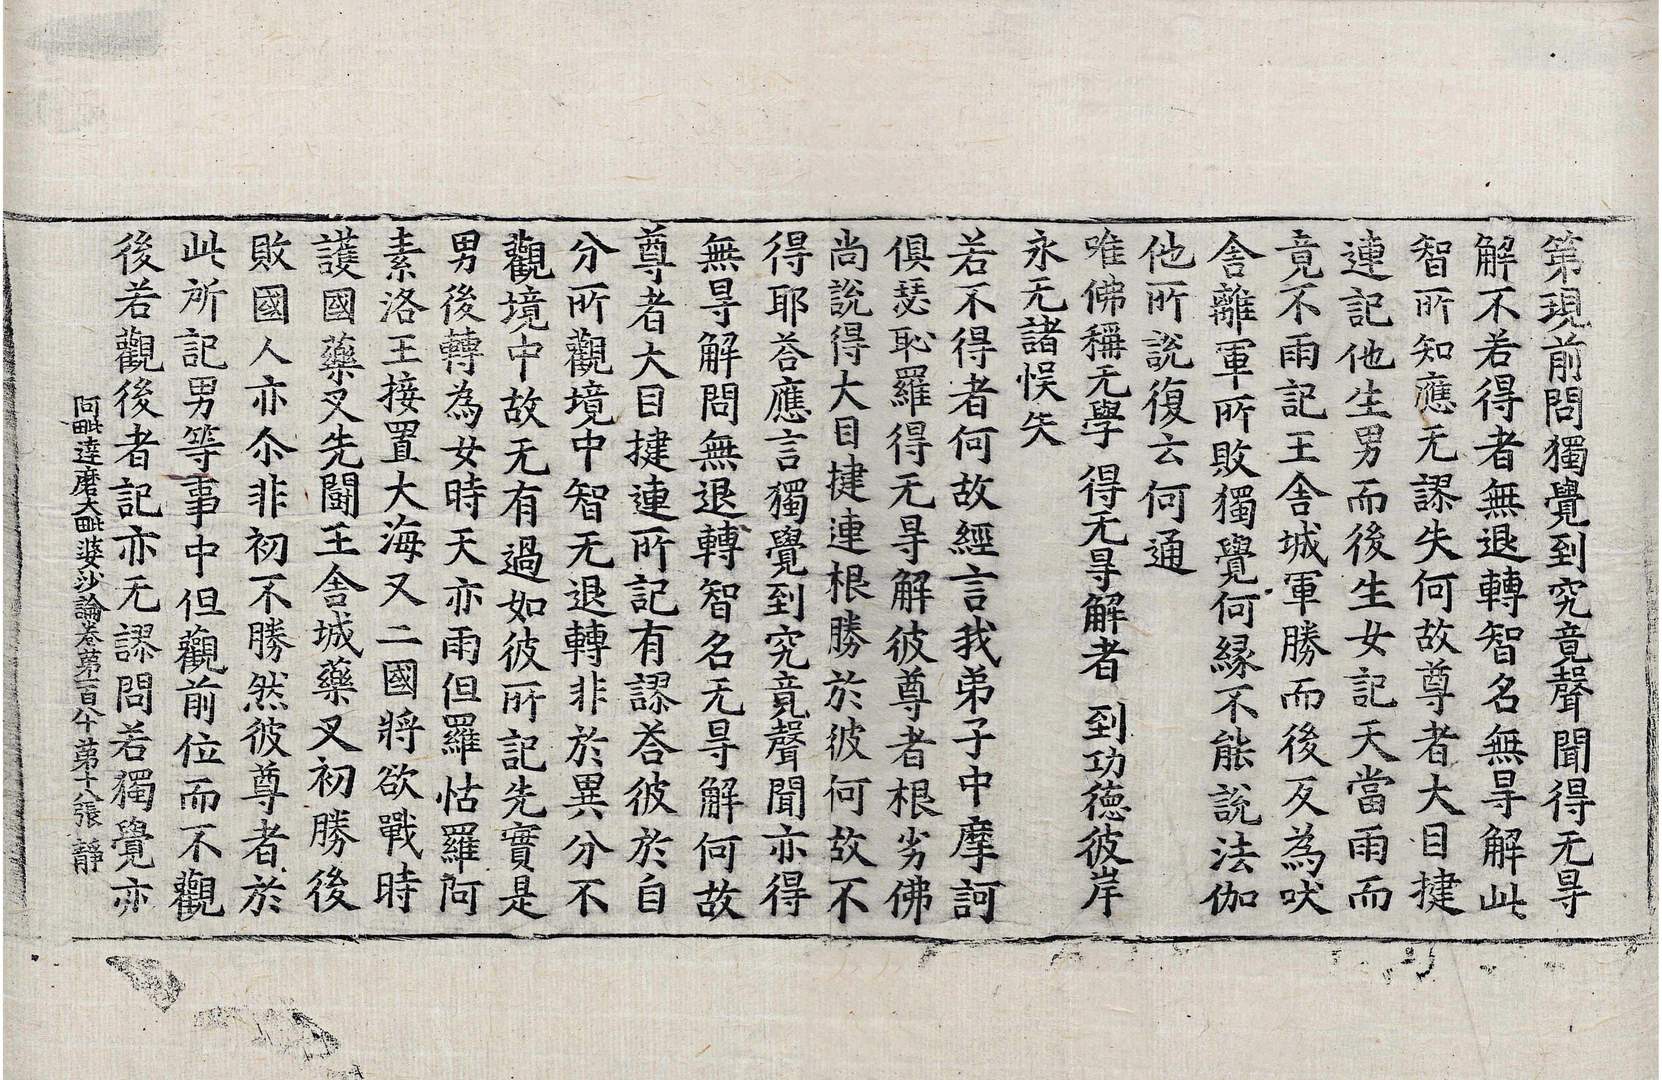 第現前問獨覺到究竟聲聞得无㝵
解不若得者無退轉智名無㝵解此
智所知應无謬失何故尊者大目揵
連記他生男而後生女記天當雨而
竟不雨記王舍城軍勝而後反為吠
舍離軍所敗獨覺何緣不能說法伽
他所說復云何通
唯佛稱无學 得无㝵解者 到功德彼岸
永无諸悮失
若不得者何故經言我弟子中摩訶
俱瑟恥羅得无㝵解彼尊者根劣佛
尚說得大目揵連根勝於彼何故不
得耶荅應言獨覺到究竟聲聞亦得
無㝵解問無退轉智名无㝵解何故
尊者大目揵連所記有謬荅彼於自
分所觀境中智无退轉非於異分不
觀境中故无有過如彼所記先實是
男後轉為女時天亦雨但羅怙羅阿
素洛王接置大海又二國將欲戰時
護國藥叉先鬪王舍城藥叉初勝後
敗國人亦尒非初不勝然彼尊者於
此所記男等事中但觀前位而不觀
後若觀後者記亦无謬問若獨覺亦
阿毗達磨大毗婆沙論卷第一百八十 第十八張 靜